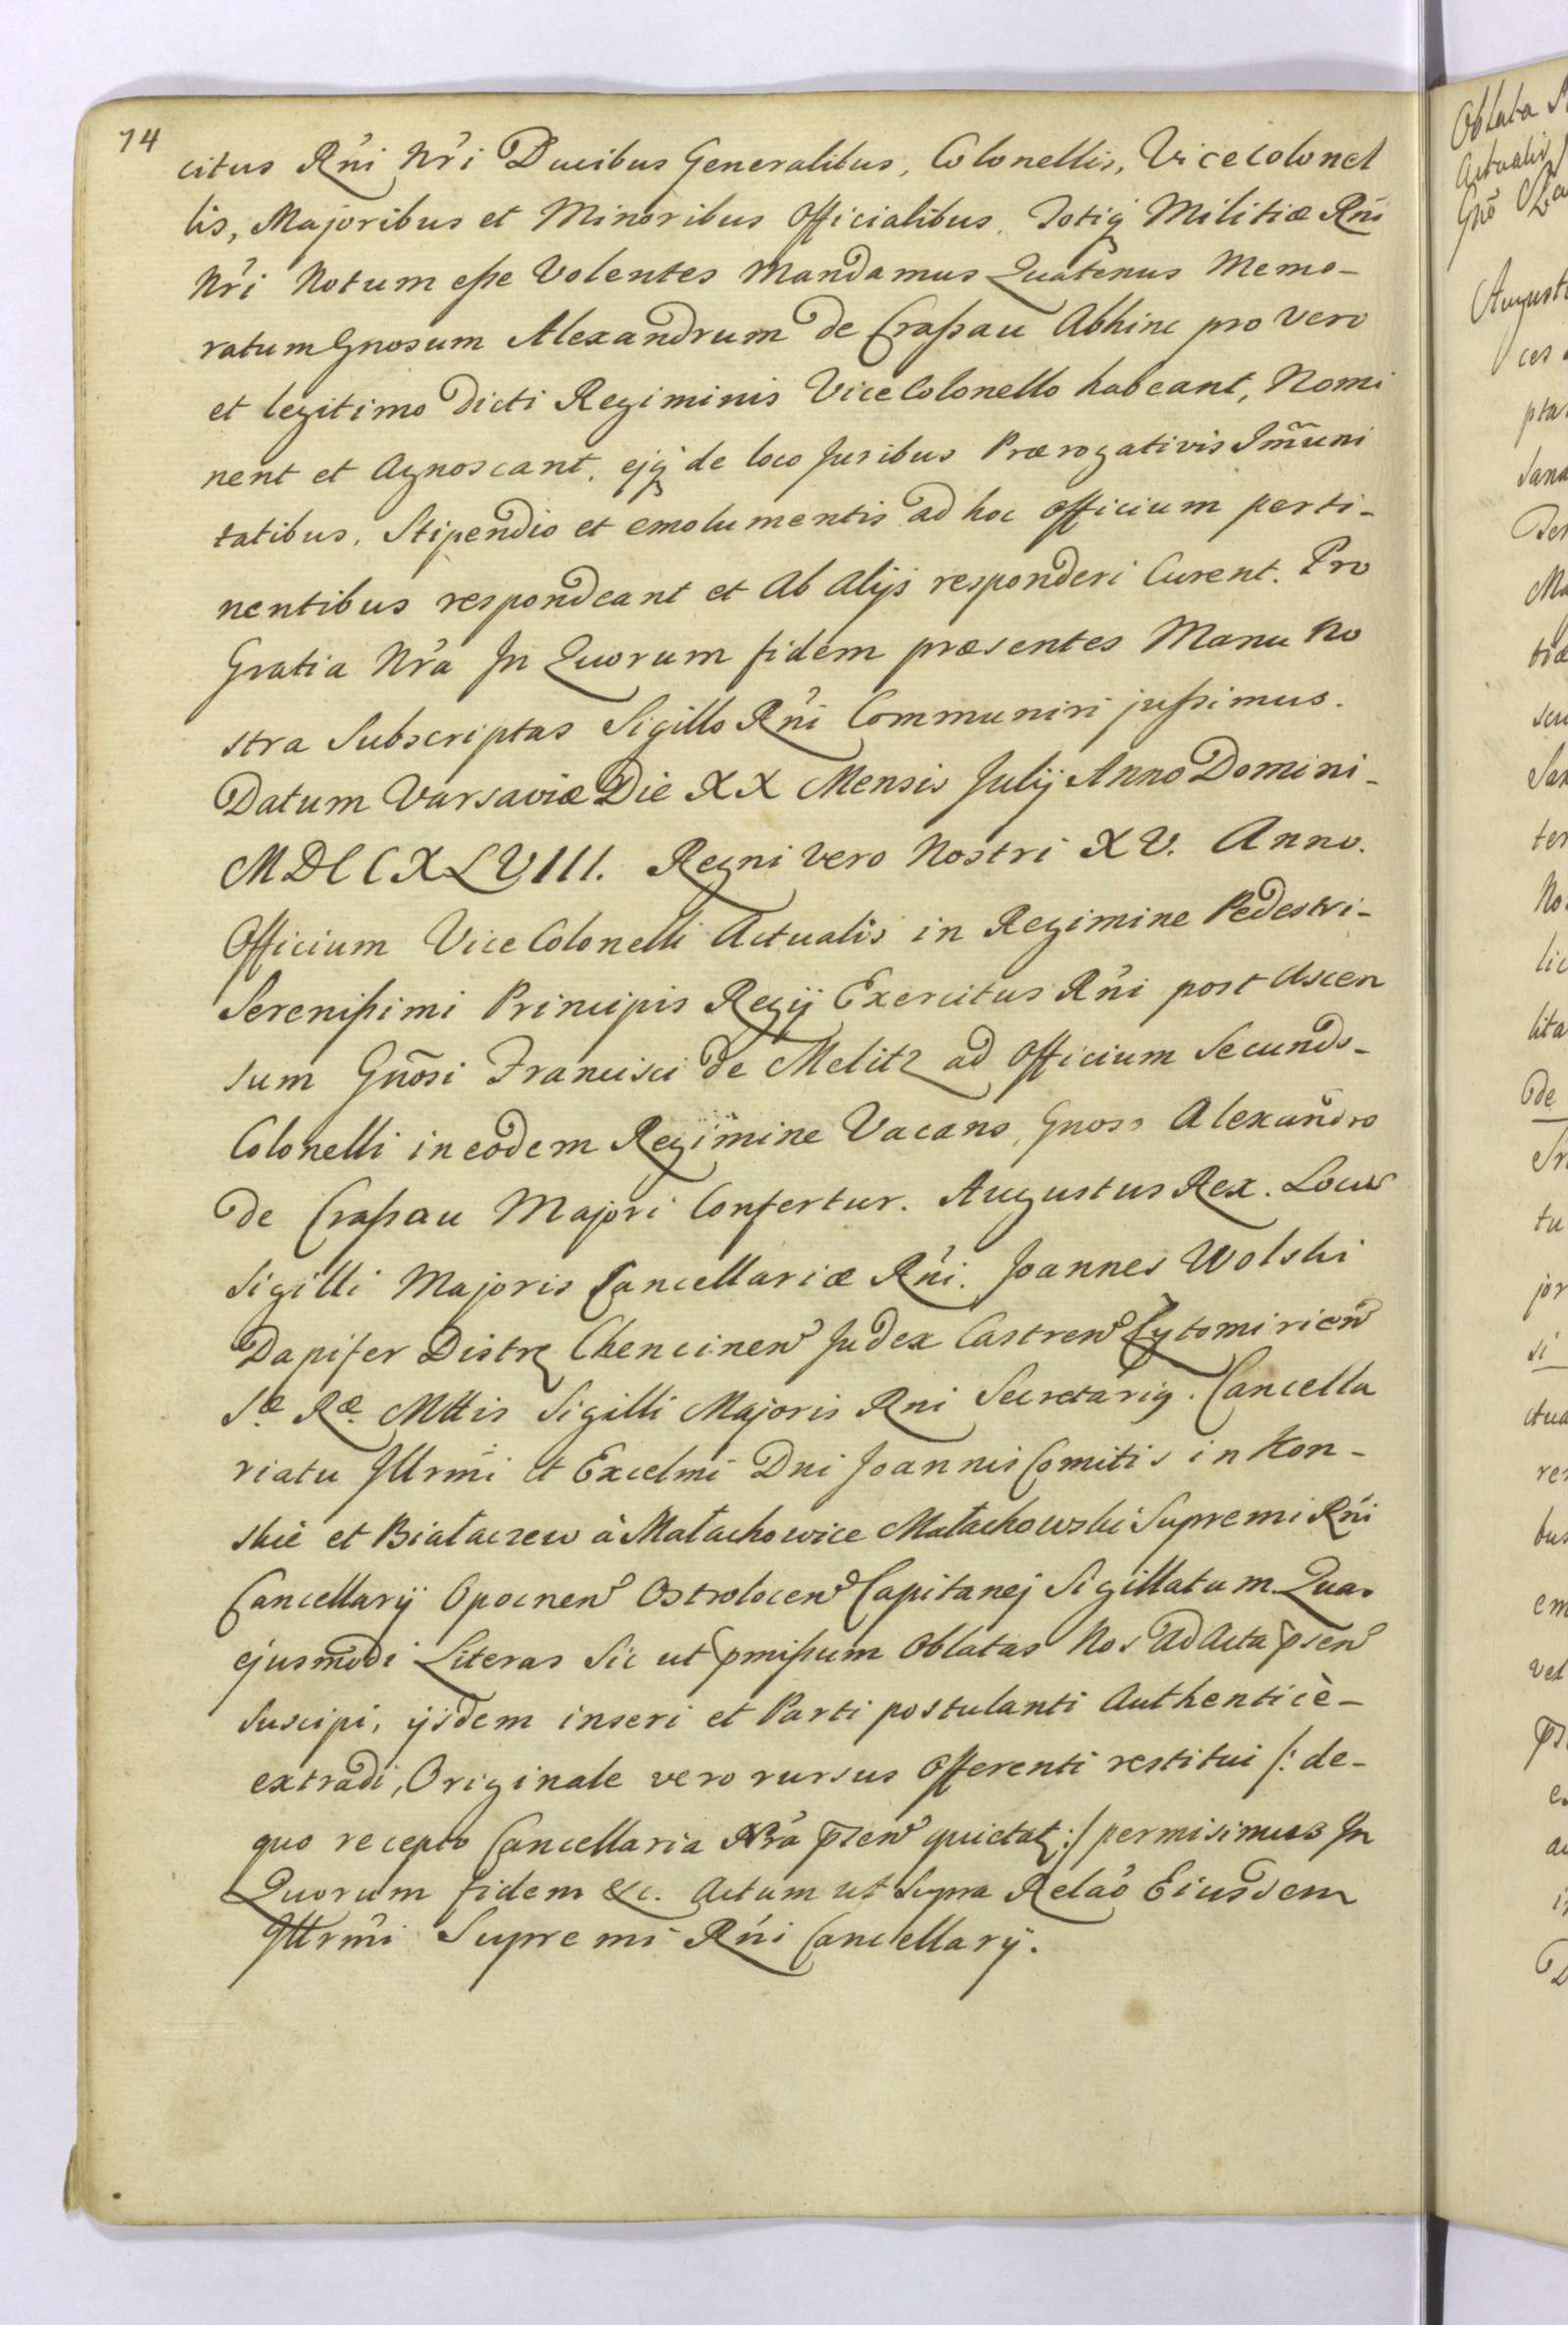 74
citus Rńi Nŕi Ducibus Generalibus, Colonellis, Vicecolonel
lis, Majoribus et Minoribus Officialibus, Totiq Militiæ Rńi
Nŕi Notum eße Volentes Mandamus Quatenus Memo-
ratum Gnosum Alexandrum de Craßau Abhinc pro vero
et legitimo dicti Regiminis Vice Colonello habeant, Nomi
nent et Agnoscant, ejq de loco Juribus Prærogativis Im̃uni
tatibus, Stipendio et emolumentis ad hoc officium perti-
nentibus respondeant et Ab Alijs responderi Curent. Pro
Gratia Nŕa Jn Quorum fidem præsentes Manu No
stra Subscriptas Sigillo Rńi Communiri jußimus.
Datum Varsaviæ Die XX Mensis Julij Anno Domini-
MDCCXLVIII. Regni vero Nostri XV. Anno.
Officium Vice Colonelli Actualis in Regimine Pedestri-
Serenißimi Principis Regij Exercitus Rńi post Ascen
sum Gñosi Francisci de Melitz ad Officium Secundo-
Colonelli in eodem Regimine Vacans, Gnoso Alexandro
de Craßau Majori Confertur. Augustus Rex. Locus
Sigilli Majoris Cancellariæ Rńi. Joannes Wolski
Dapifer Distr Chencinen Judex Castren Zytomirien
Sæ Ræ Mttis Sigilli Majoris Rni Secretariq. Cancella
riatu Jllrmi et Excelmi Dni Joannis Comitis in Kon-
skie et Białaczew à Małachowice Małachowski Supremi Rńi
Cancellarij Opocnen Ostrolocen Capitanej Sigillatum. Quas
ejusmodi Literas Sic ut pmißum Oblatas Nos Ad Acta psen
Suscipi, ijsdem inseri et Parti postulanti Authenticè-
extradi, Originale vero rursus Offerenti restitui /: de-
quo recepto Cancellaria Nŕa p̄sen quietat :/ permisimus Jn
Quorum fidem &c. Actum ut Supra Relaõ Eiusdem
Jllrmi Supremi Rńi Cancellarij.
Oblata
Actualis
Gnõ